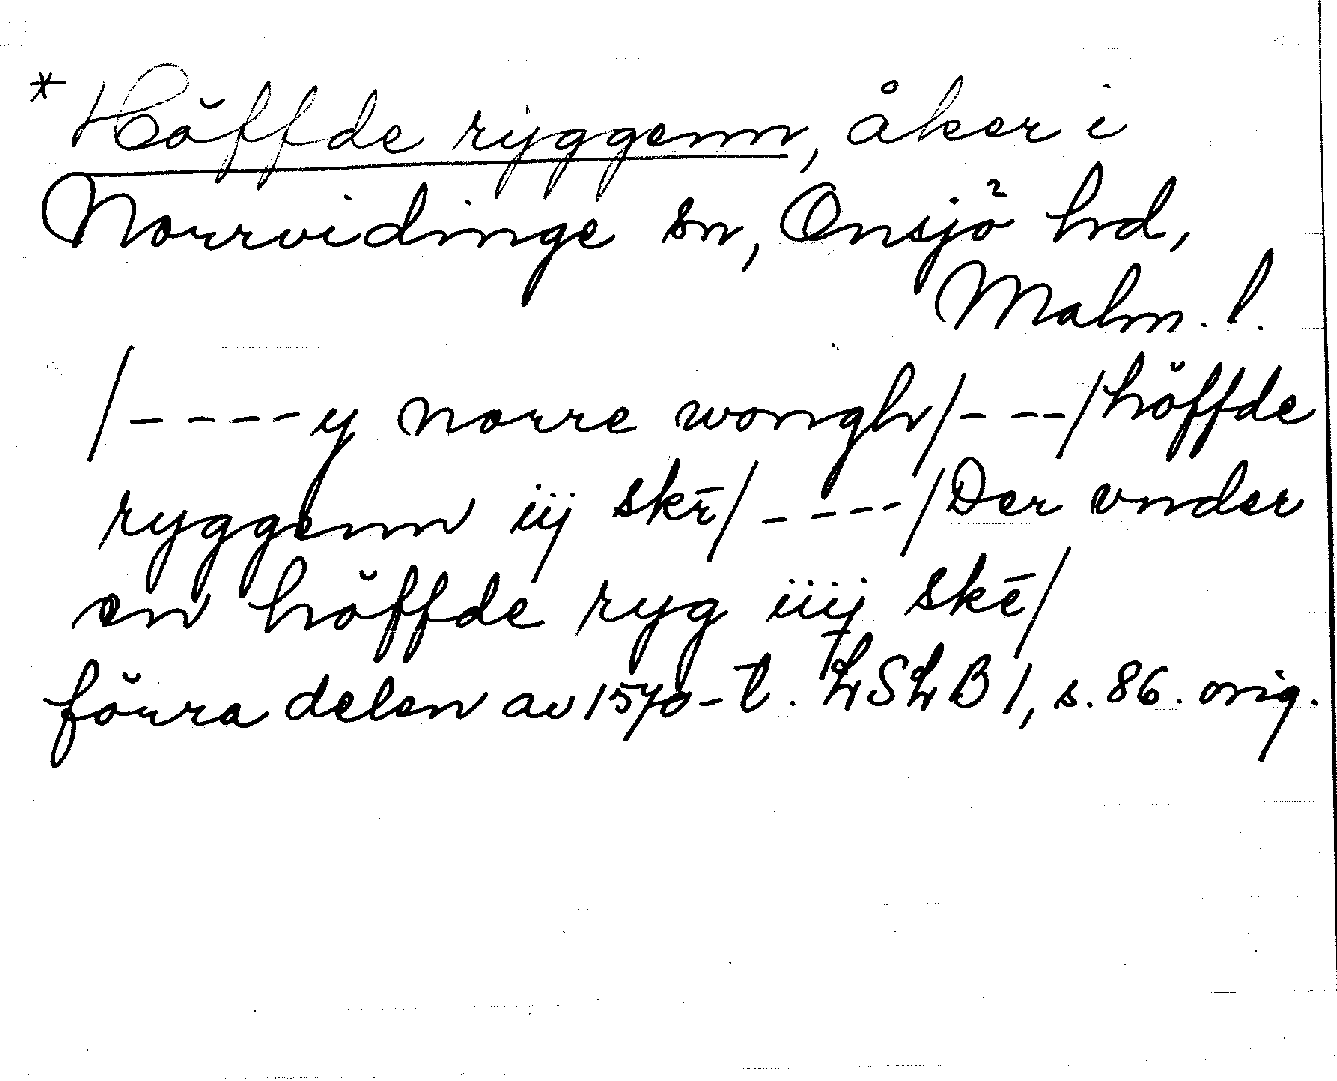 * Höffde ryggenn, åker i
Norrvidinge sn, Onsjö hd,
Malm. l.
/----y norre wongh/---/höffde
ryggenn iij skē/----/Der vnder
en höffde ryg iiij skē/
förra delen av 1570-t. LSLB 1, s. 86. orig.